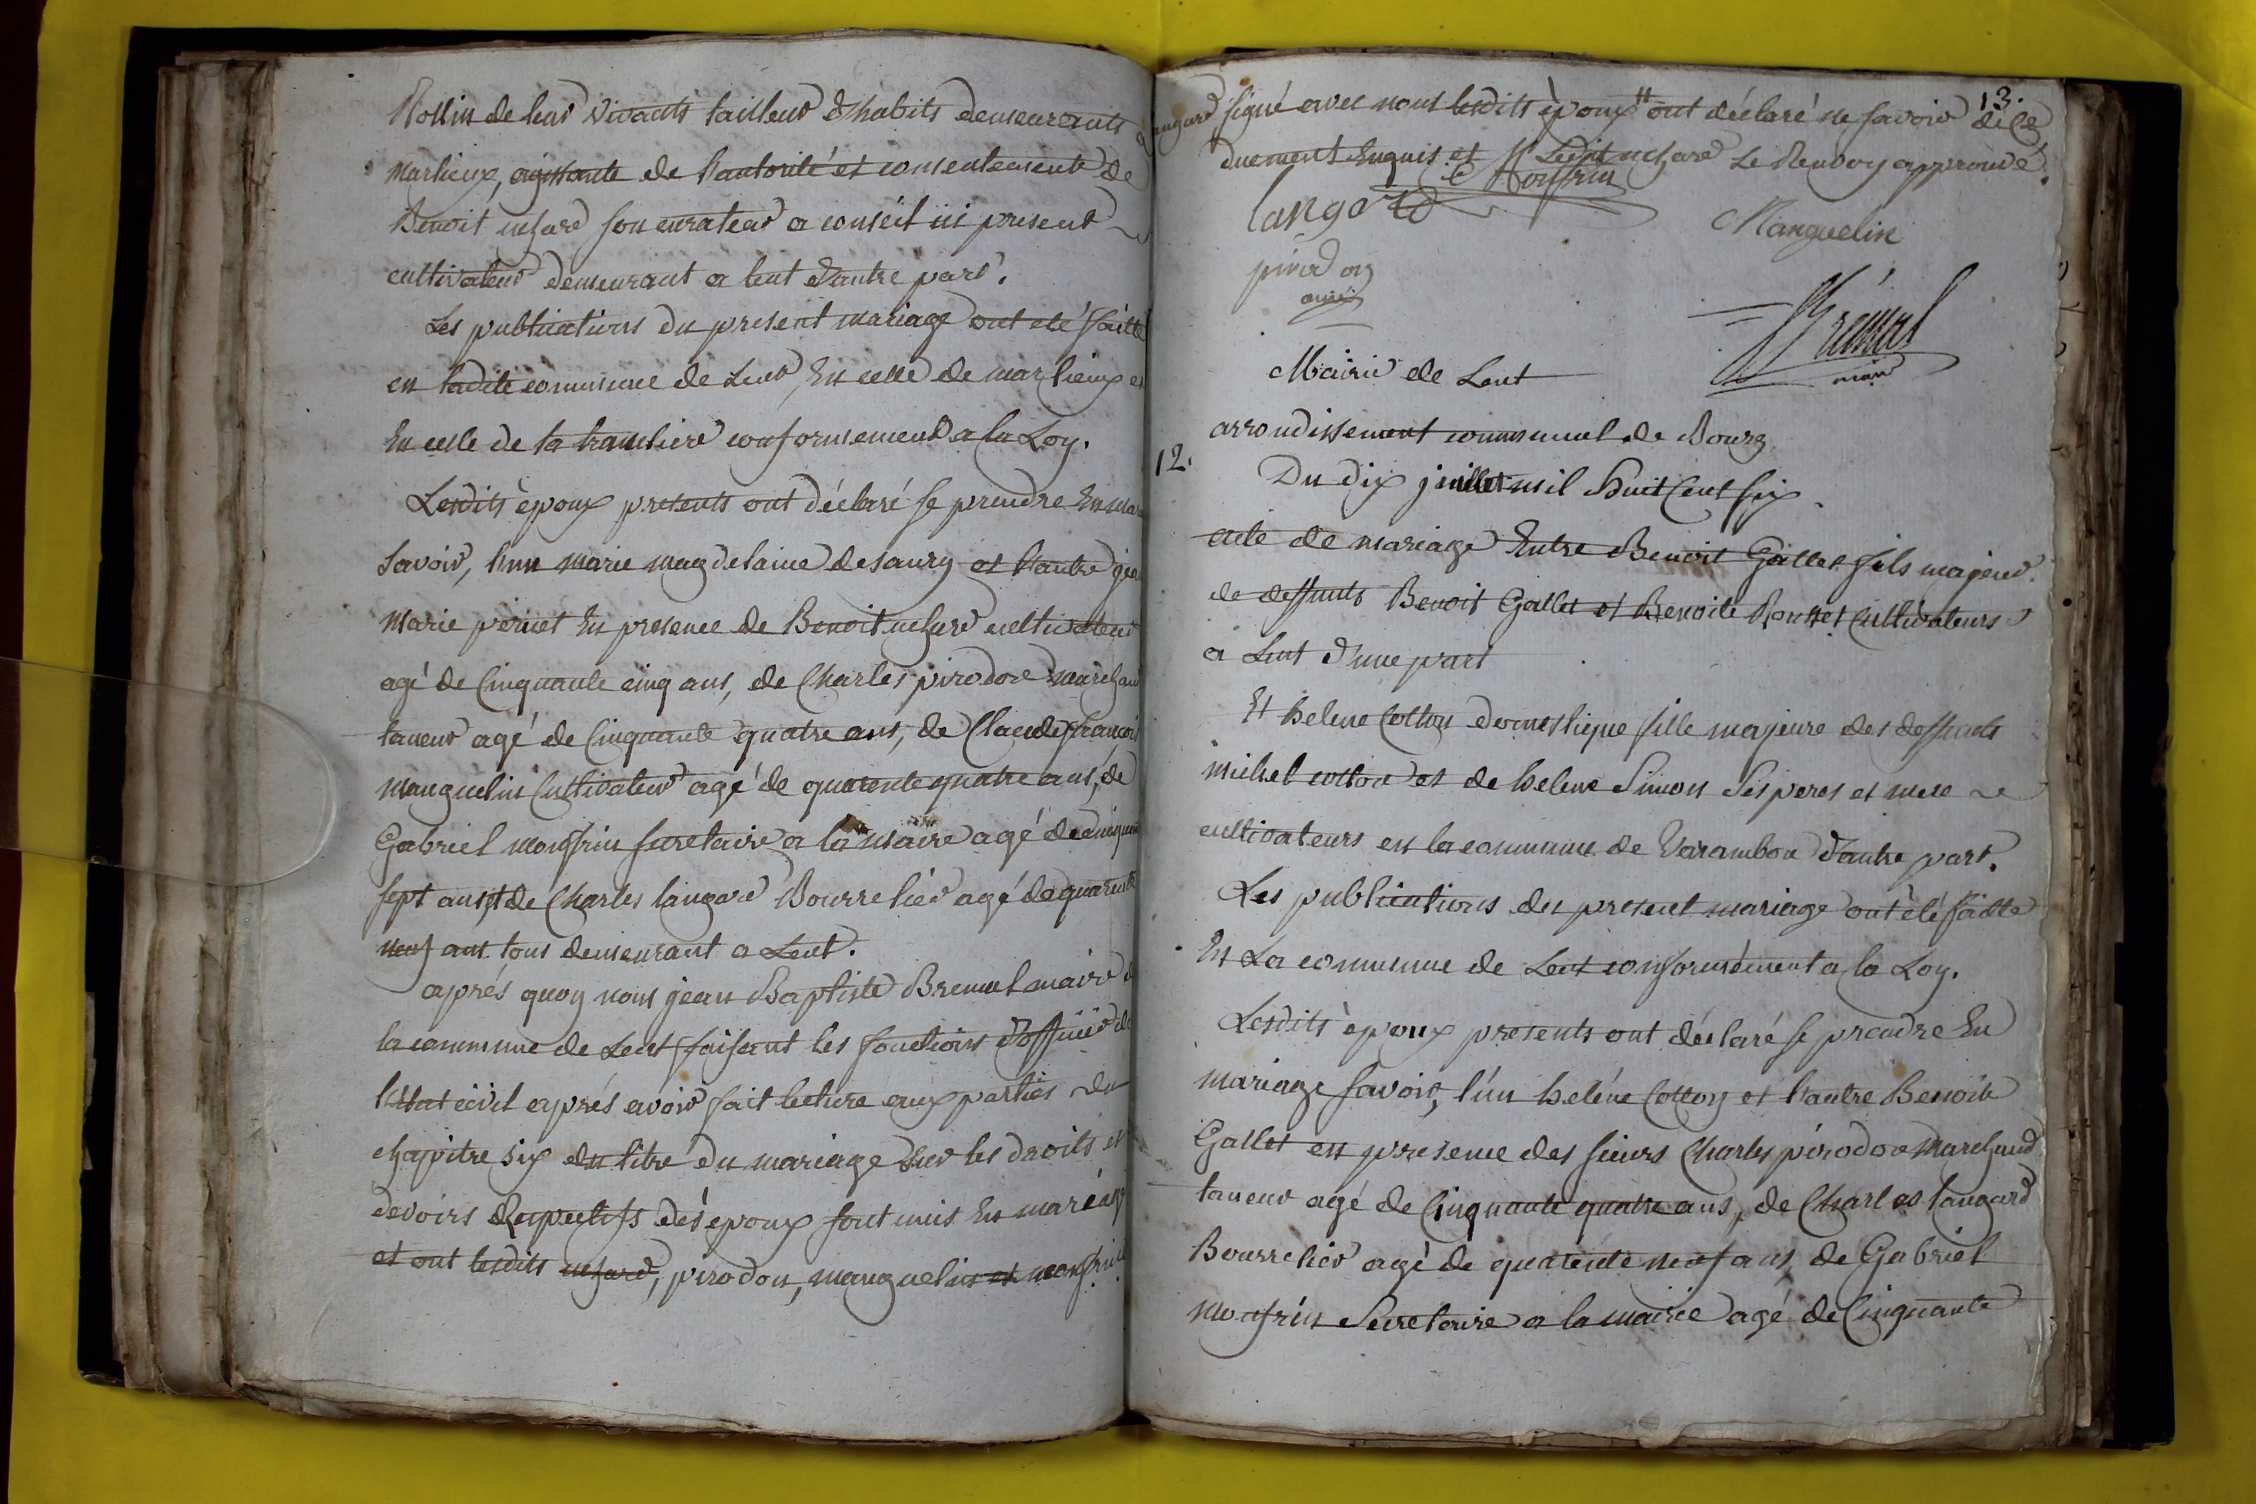 Rollin de leur vivants tailleur d'habits demeurants a
marlieux, agissante de l'autorité et consentement de
Benoit nefard son curateur a conseil ici present
cultivateur demeurant a lent d'autre part.
Les publications du present mariage ont eté faitte
en ladite commune de Lent, En celle de marlieux et
En celle de la tranclière conformement a la Loy.
Lesdits époux presents ont déclaré se prendre En mar
Savoir, l'un marie magdelaine desaury et l'autre jean
marie perret En presence de Benoit nefard cultivateur
agé de Cinquante cinq ans, de Charles pirodon marchand
taneur agé de Cinquante quatre ans, de Claude françois
manguelin Cultivateur agé de quarente quatre ans, de
Gabriel monfrin secretaire a la maire agé de cinquante
sept ans, et de Charles langard Bourrelier agé de quarente
neuf ans tous demeurant a Lent.
aprés quoy nous jean Baptiste Bremal maire de
la commune de Lent faisant les fonctions d'officier de
l'état civil aprés avoir fait lecture aux parties du
chapitre six du titre du mariage sur les droits et
devoirs Respectifs des epoux sont unis En mariage
et ont lesdits nefard, pirodon, manguelin et monfrin
13.
langard signé avec nous lesdits époux " ont déclaré ne savoir de Ce
duement Enquis et " Ledit nefard Le Renvoy approuvé.
Monfrin
langard
Manguelin
pirodon
Brémal
maire
Mairie de Lent
arrondissement communal de Bourg
12.
Du dix juillet mil huit Cent six
acte de mariage Entre Benoit Gallet fils majeur
de deffunts Benoit Gallet et Benoite Rousset Cultivateurs
a Lent d'une part
Et helene Cotton domestique fille majeure des deffunts
michel cotton et de helene Simon Ses peres et mere
cultivateurs en la commune de Varambon d'autre part.
Les publications du present mariage ont été faitte
En La commune de Lent conformément a la Loy.
Lesdits époux presents ont déclaré se prendre En
mariage savoir, l'un heléne Cotton et l'autre Benoite
Gallet en presence des sieurs Charles pirodon Marchand
taneur agé de Cinquante quatre ans, de Charles langard
Bourrelier agé de quarente neuf ans, de Gabriel
monfrin Secretaire a la mairie agé de Cinquante